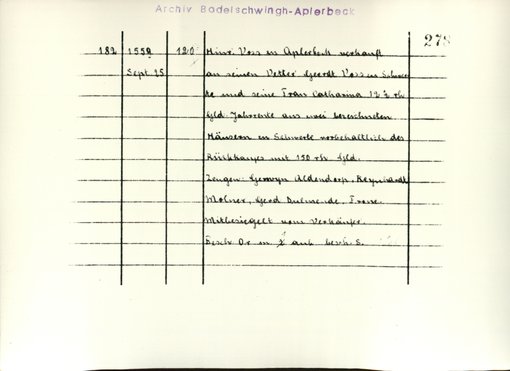 Archiv Bodelschwingh-Aplerbeck
278
182 1559 120 Hinr. Voss in Aplerbeck verkauft
Sept 25 an seinen Vetter Geerdt Voss in Schwer
te und seine Frau Catharina 12 ½ rh
Gld. Jahrrente aus zwei bezeichneten
Häusern in Schwerte vorbehaltlich des
Rückkaufes mit 150 rh. Gld.
Zeugen: Aldendorp, Reynhardt
Molner, Gerd
Mitbesiegelt vom Verkäufer.
Beschr. Or. m. anh. besch. S.